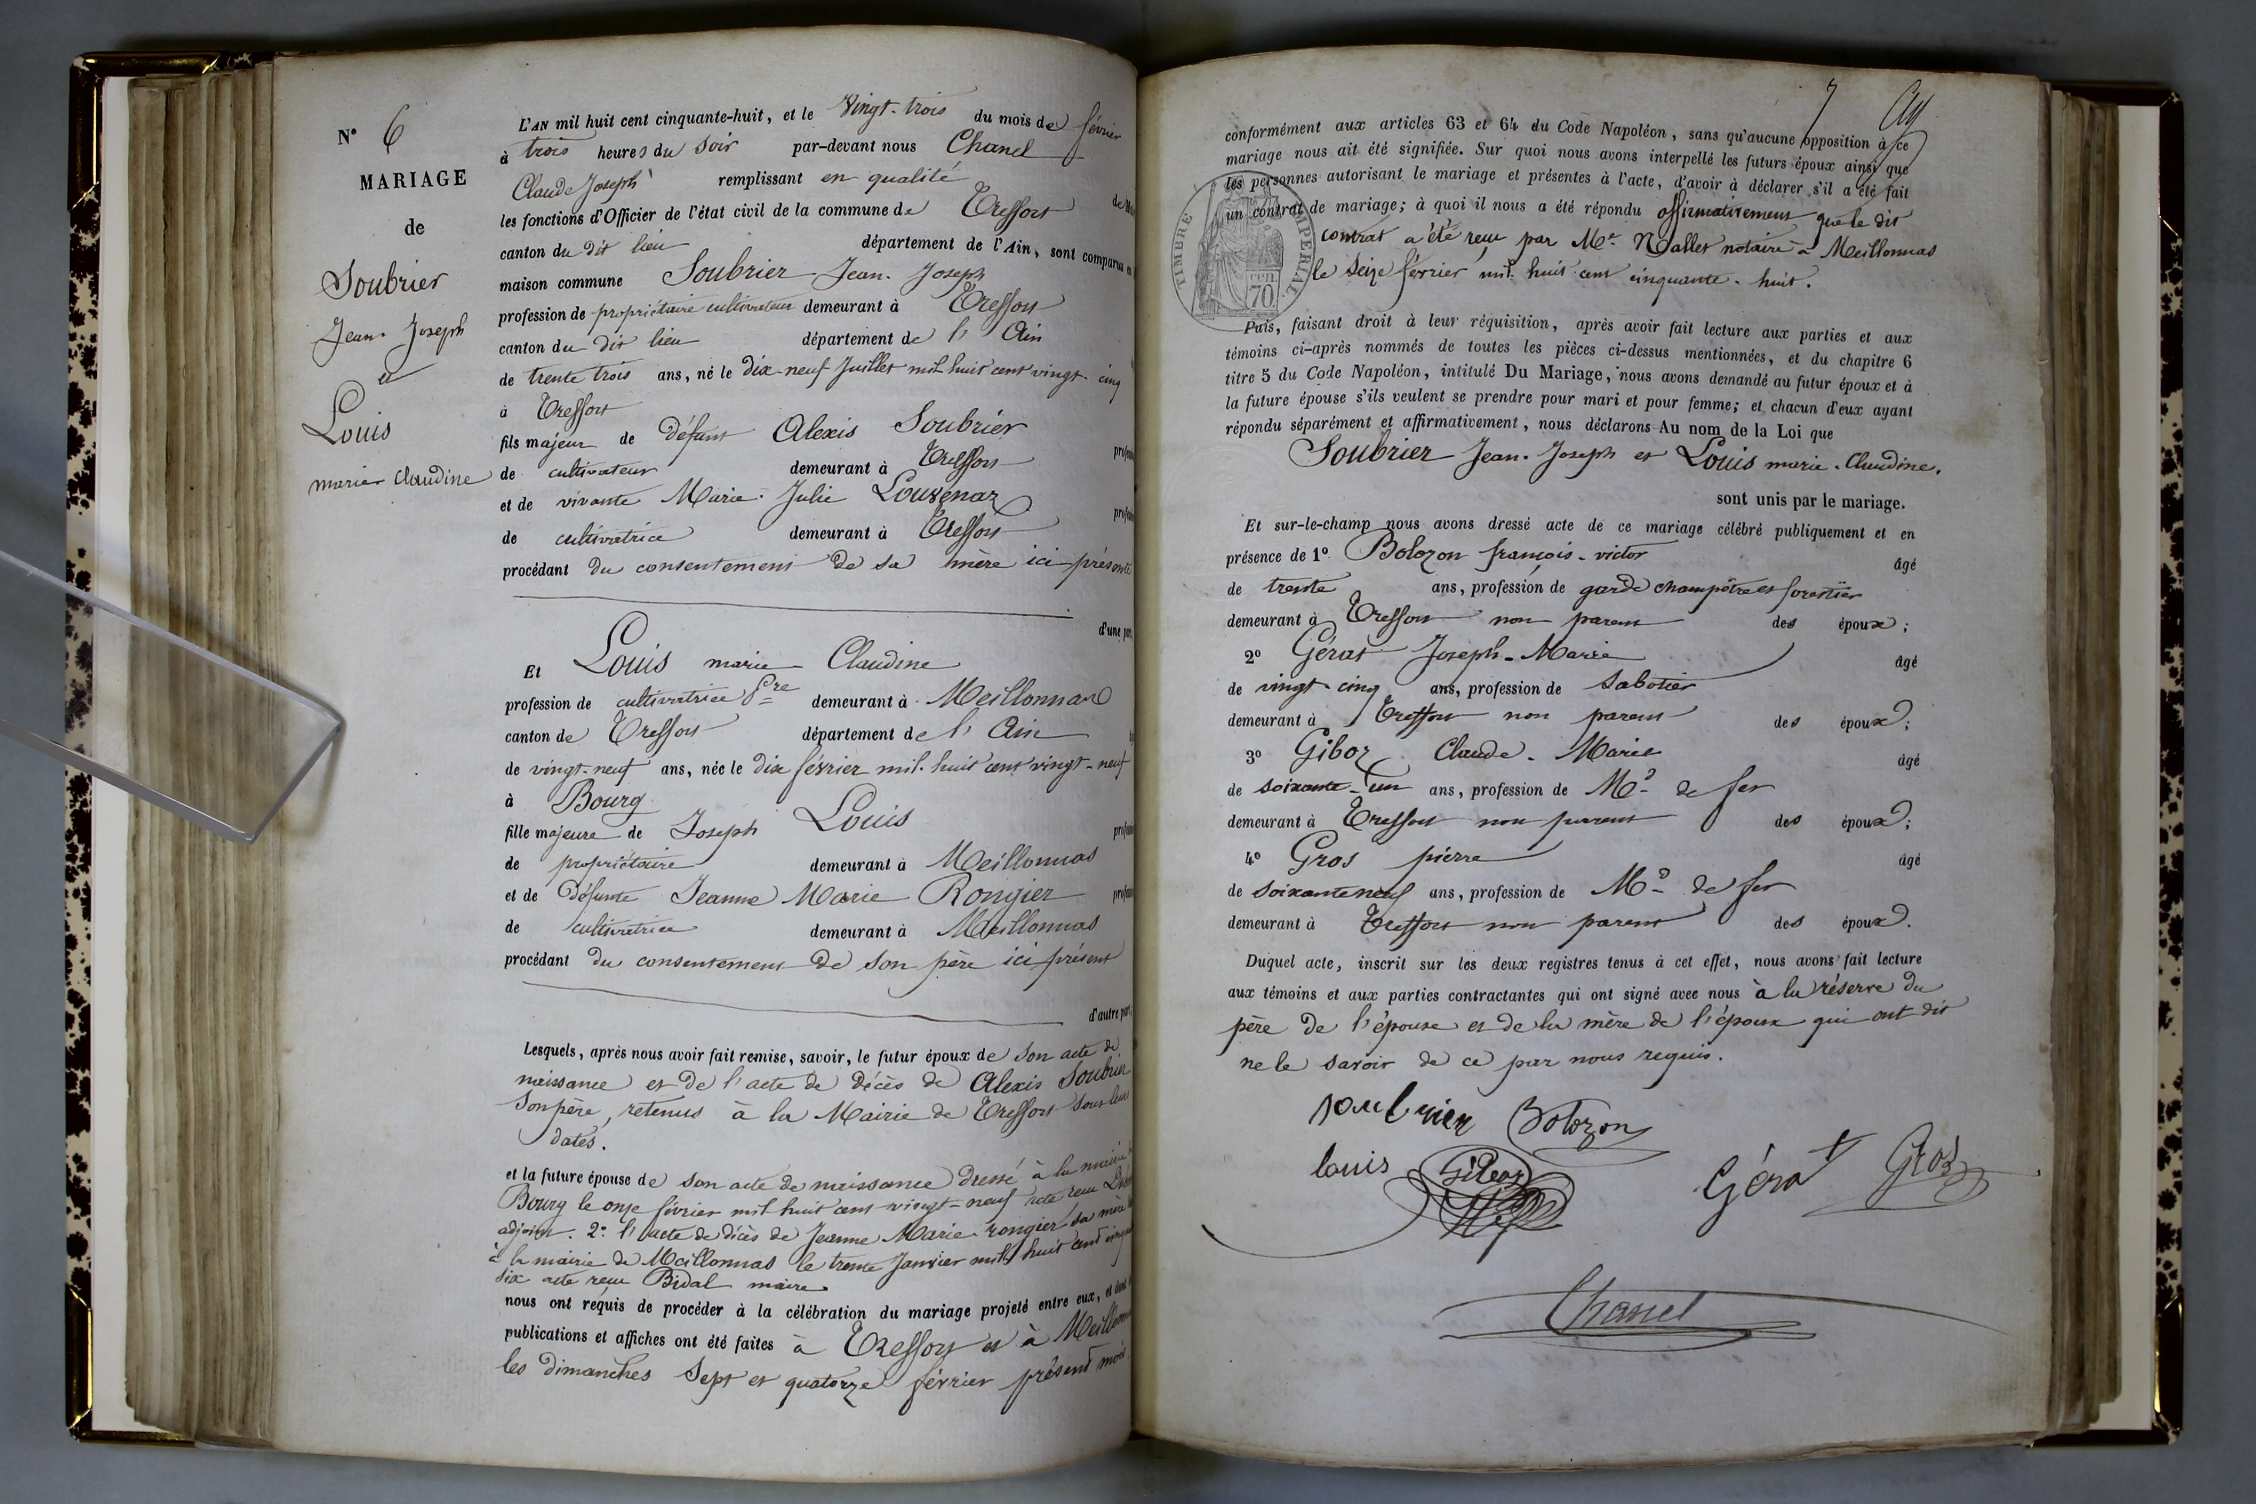 N° 6
MARIAGE
de
Soubrier
Jean-Joseph
et
Louis
marie Claudine
L'AN mil huit cent cinquante-huit, et le Vingt-trois du mois de février
à trois heures du soir par-devant nous Chanel
Claude Joseph remplissant en qualité de
les fonctions d'Officier de l'état civil de la commune de Treffort
canton du dit lieu département de l'Ain, sont comparus en
maison commune Soubrier Jean-Joseph
profession de propriétaire cultivateur demeurant à Treffort
canton du dit lieu département de l'Ain
de trente trois ans, né le dix-neuf Juillet mil huit cent vingt-cinq
à Treffort
fils majeur de défunt Alexis Soubrier
de cultivateur demeurant à Treffort
et de vivante Marie-Julie
de cultivatrice demeurant à Treffort
procédant du consentement de sa mère ici présente
d'une par
Et Louis marie Claudine
profession de cultivatrice demeurant à Meillonnas
canton de Treffort département de l'Ain
de vingt-neuf ans, née le dix février mil huit cent vingt-neuf
à Bourg
fille majeure de Joseph Louis
de propriétaire demeurant à Meillonnas
et de défunte Jeanne Marie Rongier
de cultivatrice demeurant à Meillonnas
procédant du consentement de son père ici présent
d'autre part
Lesquels, après nous avoir fait remise, savoir, le futur époux de son acte de
naissance et de l'acte de décès de Alexis Soubrier
son père, retenus à la Mairie de Treffort sous leurs
dates.
et la future épouse de son acte de naissance dressé à la mairie
Bourg le onze février mil huit cent vingt-neuf acte reçu
adjoint. 2° l'acte de décès de Jeanne Marie rongier sa mère
à la mairie de Meillonnas le trente Janvier mil huit cent
six acte reçu Bidal maire
nous ont requis de procéder à la célébration du mariage projeté entre eux, et dont
publications et affiches ont été faites à Treffort et à Meillonnas
les dimanches Sept et quatorze février présent mois
7
conformément aux articles 63 et 64 du Code Napoléon, sans qu'aucune opposition à ce
mariage nous ait été signifiée. Sur quoi nous avons interpellé les futurs époux ainsi que
les personnes autorisant le mariage et présentes à l'acte, d'avoir à déclarer s'il a été fait
un contrat de mariage; à quoi il nous a été répondu affirmativement que le dit
contrat a été reçu par Me. Nallet notaire à Meillonnas
le seize février mil huit cent cinquante-huit.
TIMBRE IMPERIAL
CEN 70
Puis, faisant droit à leur réquisition, après avoir fait lecture aux parties et aux
témoins ci-après nommés de toutes les pièces ci-dessus mentionnées, et du chapitre 6
titre 5 du Code Napoléon, intitulé Du Mariage, nous avons demandé au futur époux et à
la future épouse s'ils veulent se prendre pour mari et pour femme; et chacun d'eux ayant
répondu séparément et affirmativement, nous déclarons Au nom de la Loi que
Soubrier Jean-Joseph et Louis marie-Claudine.
sont unis par le mariage.
Et sur-le-champ nous avons dressé acte de ce mariage célébré publiquement et en
présence de 1° Bolozon françois-victor âgé
de trente ans, profession de garde champêtre et forestier
demeurant à Treffort non parent des époux;
2° Gérat Joseph-Marie âgé
de vingt-cinq ans, profession de sabotier
demeurant à Treffort non parent des époux;
3° Giboz Claude-Marie âgé
de soixante-un ans, profession de Md de fer
demeurant à Treffort non parent des époux;
4° Gros pierre âgé
de soixante neuf ans, profession de Md de fer
demeurant à Treffort non parent des époux.
Duquel acte, inscrit sur les deux registres tenus à cet effet, nous avons fait lecture
aux témoins et aux parties contractantes qui ont signé avec nous à la réserve du
père de l'épouse et de la mère de l'époux qui ont dit
ne le savoir de ce par nous requis.
soubrier Bolozon
louis Giboz Gérat Gros
Chanel